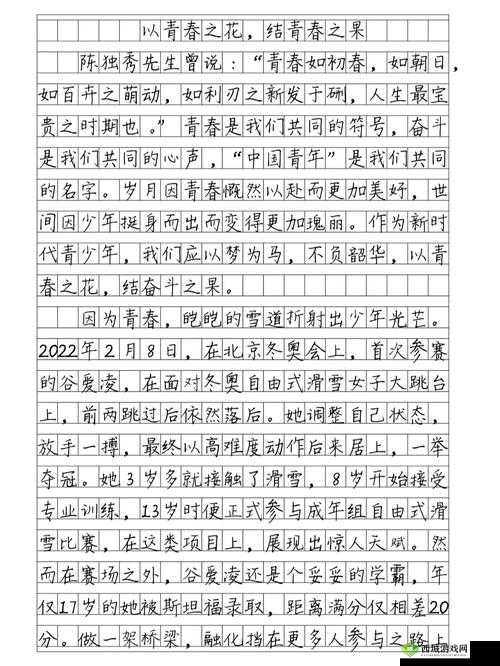 以青春之花，结青春之果
陈独秀先生曾说：“青春如初春，如朝日，
如百卉之萌动，如利刃之新发于硎，人生最宝
贵之时期也。”青春是我们共同的符号，奋斗
是我们共同的心声，“中国青年”是我们共同
的名字。岁月因青春慨然以赴而更加美好，世
间因少年挺身而出而变得更加瑰丽。作为新时
代青少年，我们应以梦为马，不负韶华，以青
春之花，结奋斗之果。
因为青春，皑皑的雪道折射出少年光芒。
2022年2月8日，在北京冬奥会上，首次参赛
的谷爱凌，在面对冬奥自由式滑雪女子大跳台
上，前两跳过后依然落后。她调整自己状态，
放手一搏，最终以高难度动作后来居上，一举
夺冠。她3岁多就接触了滑雪，8岁开始接受
专业训练，13岁时便正式参与成年组自由式滑
雪比赛，在这类项目上，展现出惊人天赋。然
而在赛场之外，谷爱凌还是个妥妥的学霸，年
仅17岁的她被斯坦福录取，距离满分仅相差20
分。做一架桥梁，融化挡在更多人参与之路上
西城游戏网